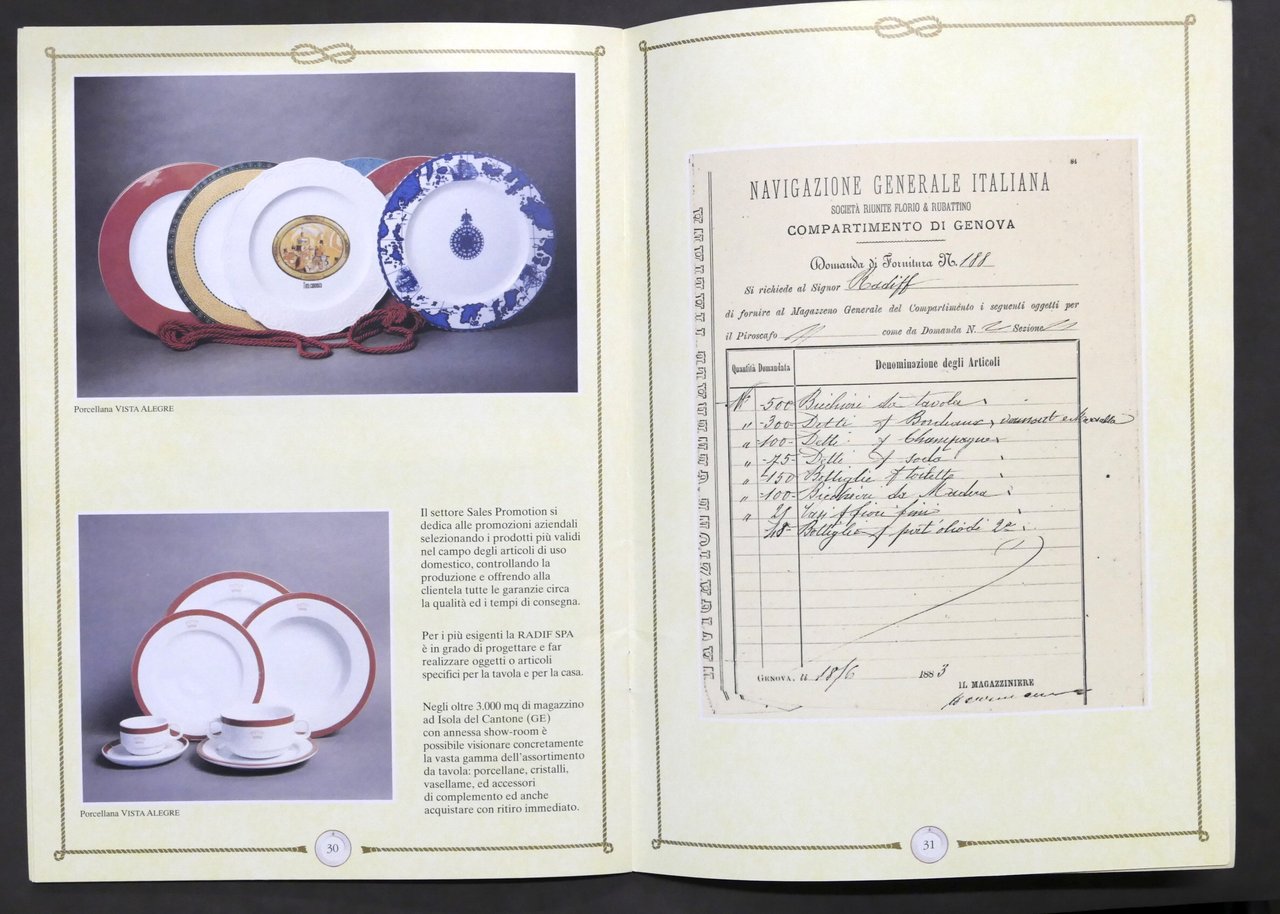 Porcellana VISTA ALEGRE
Il settore Sales Promotion si
dedica alle promozioni aziendali
selezionando i prodotti più validi
nel campo degli articoli di uso
domestico, controllando la
produzione e offrendo alla
clientela tutte le garanzie circa
la qualità ed i tempi di consegna.
Per i più esigenti la RADIF SPA
è in grado di progettare e far
realizzare oggetti o articoli
specifici per la tavola e per la casa.
Negli oltre 3.000 mq di magazzino
ad Isola del Cantone (GE)
con annessa show-room è
possibile visionare concretamente
la vasta gamma dell'assortimento
da tavola: porcellane, cristalli,
vasellame, ed accessori
di complemento ed anche
acquistare con ritiro immediato.
Porcellana VISTA ALEGRE
30
84
NAVIGAZIONE GENERALE ITALIANA
SOCIETÀ RIUNITE FLORIO & RUBATTINO
COMPARTIMENTO DI GENOVA
Domanda di Fornitura N. 188
Si richiede al Signor Radiff
di fornire al Magazzeno Generale del Compartimento i seguenti oggetti per
il Piroscafo come da Domanda N. Sezione
Quantità Domandata Denominazione degli Articoli
N° 500 Bicchieri da tavola
" 300 Detti Bordeaux
" 100 Detti Champagne
" 75 Detti soda
" 150 Bottiglie toilette
" 100 Bicchieri da Madera
" 25 Vasi fiori fini
48 Bottiglie
GENOVA, li 18/6 1883
IL MAGAZZINIERE
31